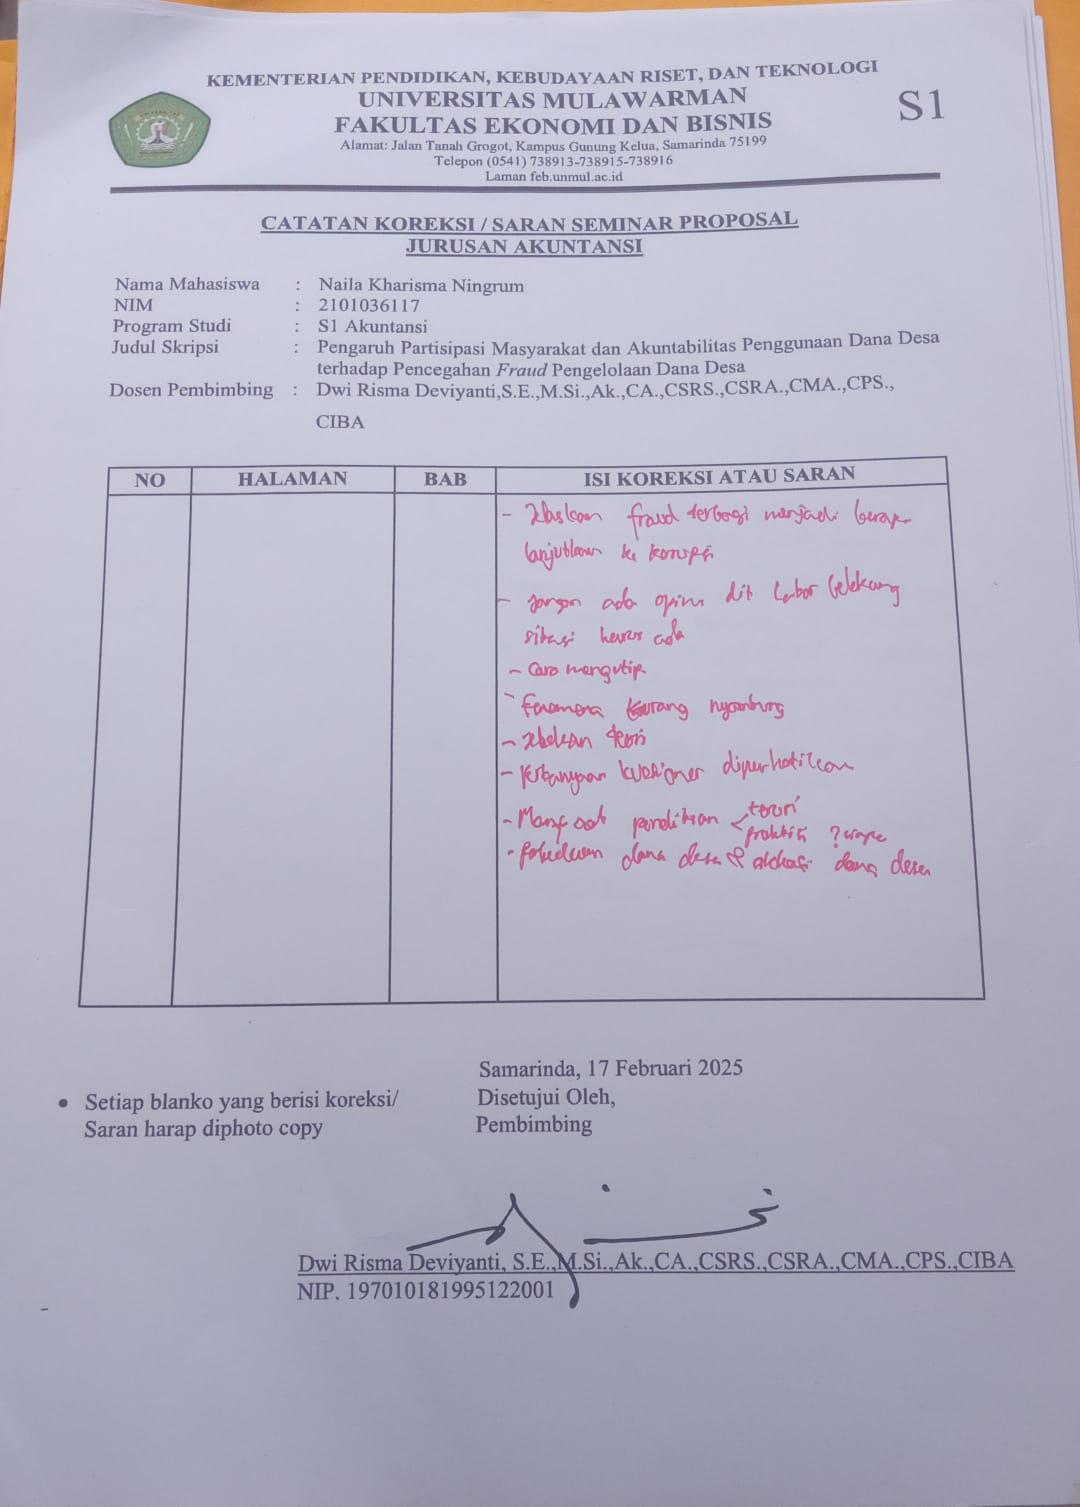 KEMENTERIAN PENDIDIKAN, KEBUDAYAAN RISET, DAN TEKNOLOGI
UNIVERSITAS MULAWARMAN
FAKULTAS EKONOMI DAN BISNIS
S1
Alamat: Jalan Tanah Grogot, Kampus Gunung Kelua, Samarinda 75199
Telepon (0541) 738913-738915-738916
Laman feb.unmul.ac.id
CATATAN KOREKSI / SARAN SEMINAR PROPOSAL
JURUSAN AKUNTANSI
Nama Mahasiswa : Naila Kharisma Ningrum
NIM : 2101036117
Program Studi : S1 Akuntansi
Judul Skripsi : Pengaruh Partisipasi Masyarakat dan Akuntabilitas Penggunaan Dana Desa
terhadap Pencegahan Fraud Pengelolaan Dana Desa
Dosen Pembimbing : Dwi Risma Deviyanti,S.E.,M.Si.,Ak.,CA.,CSRS.,CSRA.,CMA.,CPS.,
CIBA
NO HALAMAN BAB ISI KOREKSI ATAU SARAN
- fraud terbagi menjadi
ke korupsi
- Jangan ada opini di Latar belakang
sitasi harus ada
- Cara mengutip
- Fenomena kurang nyambung
- teori
- kuesioner diperhatikan
- Manfaat
praktik
- dana desa & alokasi dana desa
Samarinda, 17 Februari 2025
• Setiap blanko yang berisi koreksi/
Saran harap diphoto copy
Disetujui Oleh,
Pembimbing
Dwi Risma Deviyanti, S.E.,M.Si.,Ak.,CA.,CSRS.,CSRA.,CMA.,CPS.,CIBA
NIP. 197010181995122001